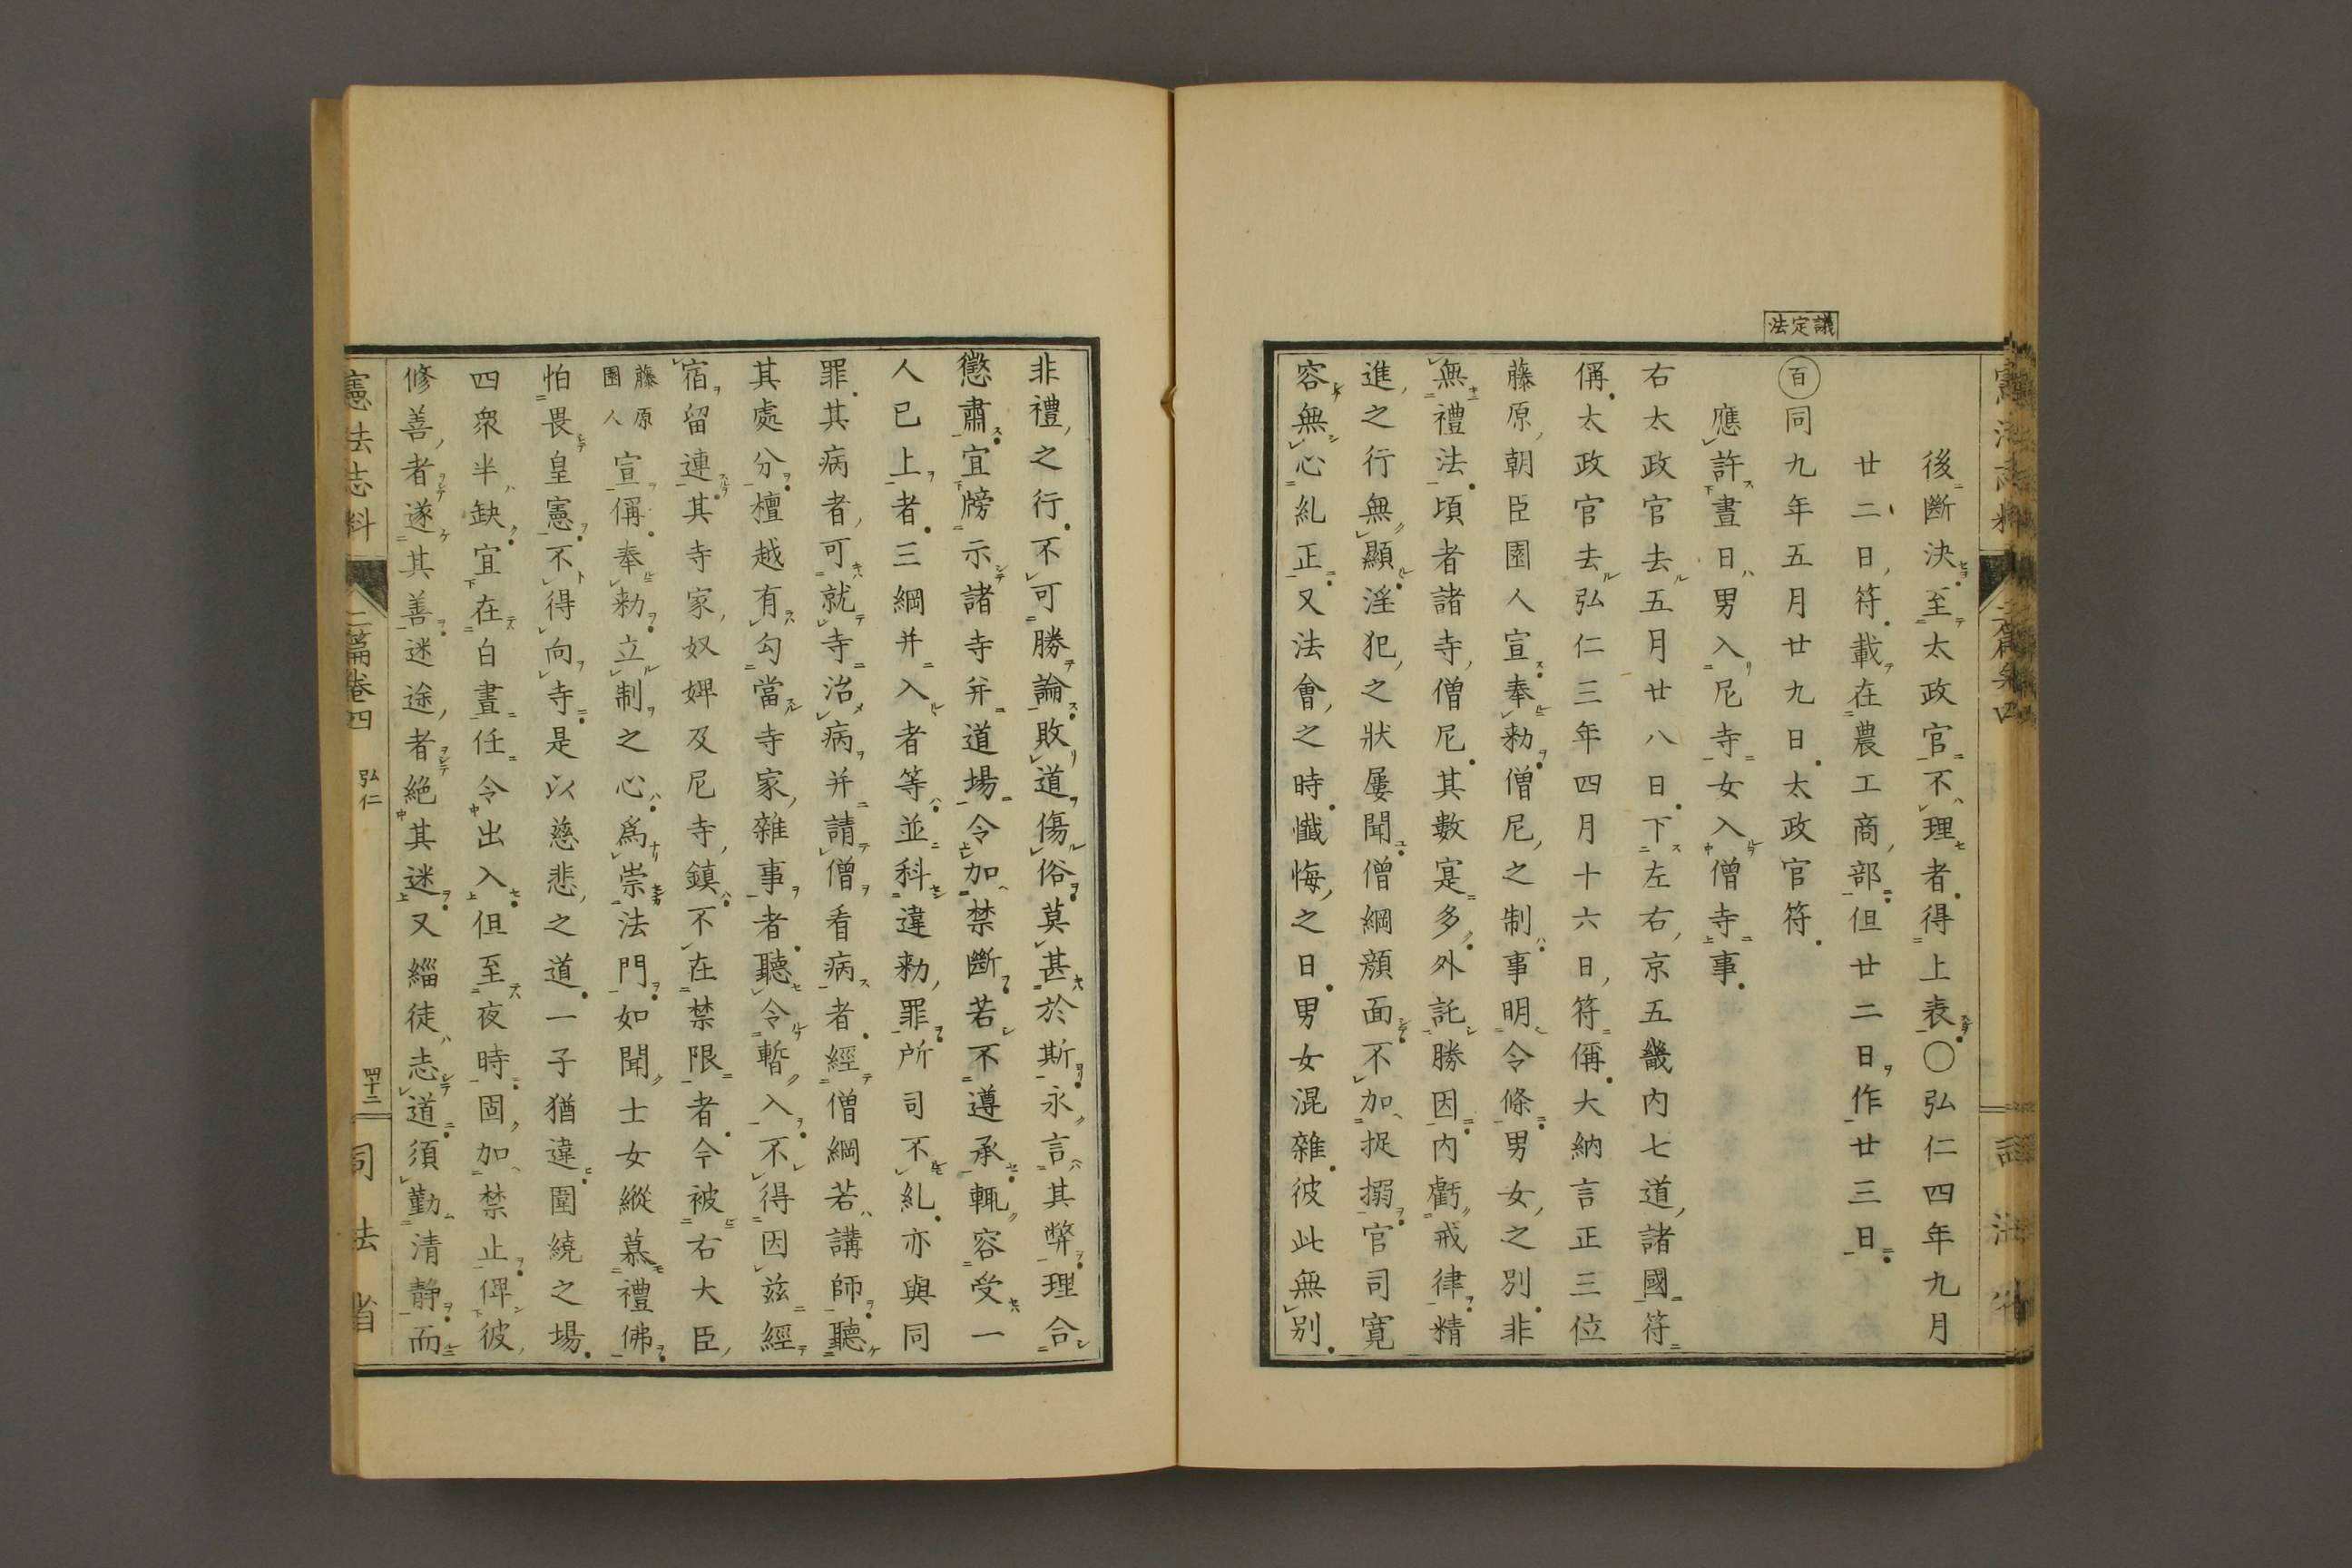 後斷決至太政官不理者得上表〇弘仁四年九月
廿二日符載在農工商部但廿二日作廿三日
議定法
百同九年五月廿九日太政官符
應許晝日男入尼寺女入僧寺事
右太政官去五月廿八日下左右京五畿內七道諸國符
偁太政官去弘仁三年四月十六日符偁大納言正三位
藤原朝臣園人宣奉勅僧尼之制事明令條男女之別非
無禮法頃者諸寺僧尼其數寔多外託勝因內虧戒律精
進之行無顯淫犯之狀屢聞僧綱顏面不加捉搦官司寬
容無心糺正又法會之時懺悔之日男女混雜彼此無別
非禮之行不可勝論敗道傷俗莫甚於斯永言其弊理合
懲肅宜牓示諸寺幷道場令加禁斷若不遵承輒容受一
人已上者三綱幷入者等並科違勅罪所司不糺亦與同
罪其病者可就寺治病幷請僧看病者經僧綱若講師聽
其處分檀越有勾當寺家雜事者聽令暫入不得因茲經
宿留連其寺家奴婢及尼寺鎮不在禁限者今被右大臣
藤原園人宣偁奉勅立制之心爲崇法門如聞士女縱慕禮佛
怕畏皇憲不得向寺是以慈悲之道一子猶違圍繞之場
四衆半缺宜在白晝任令出入但至夜時固加禁止俾彼
修善者遂其善迷途者絕其迷又緇徒志道須勤清靜而
憲法志料 二篇卷四 弘仁 四十二 司法省